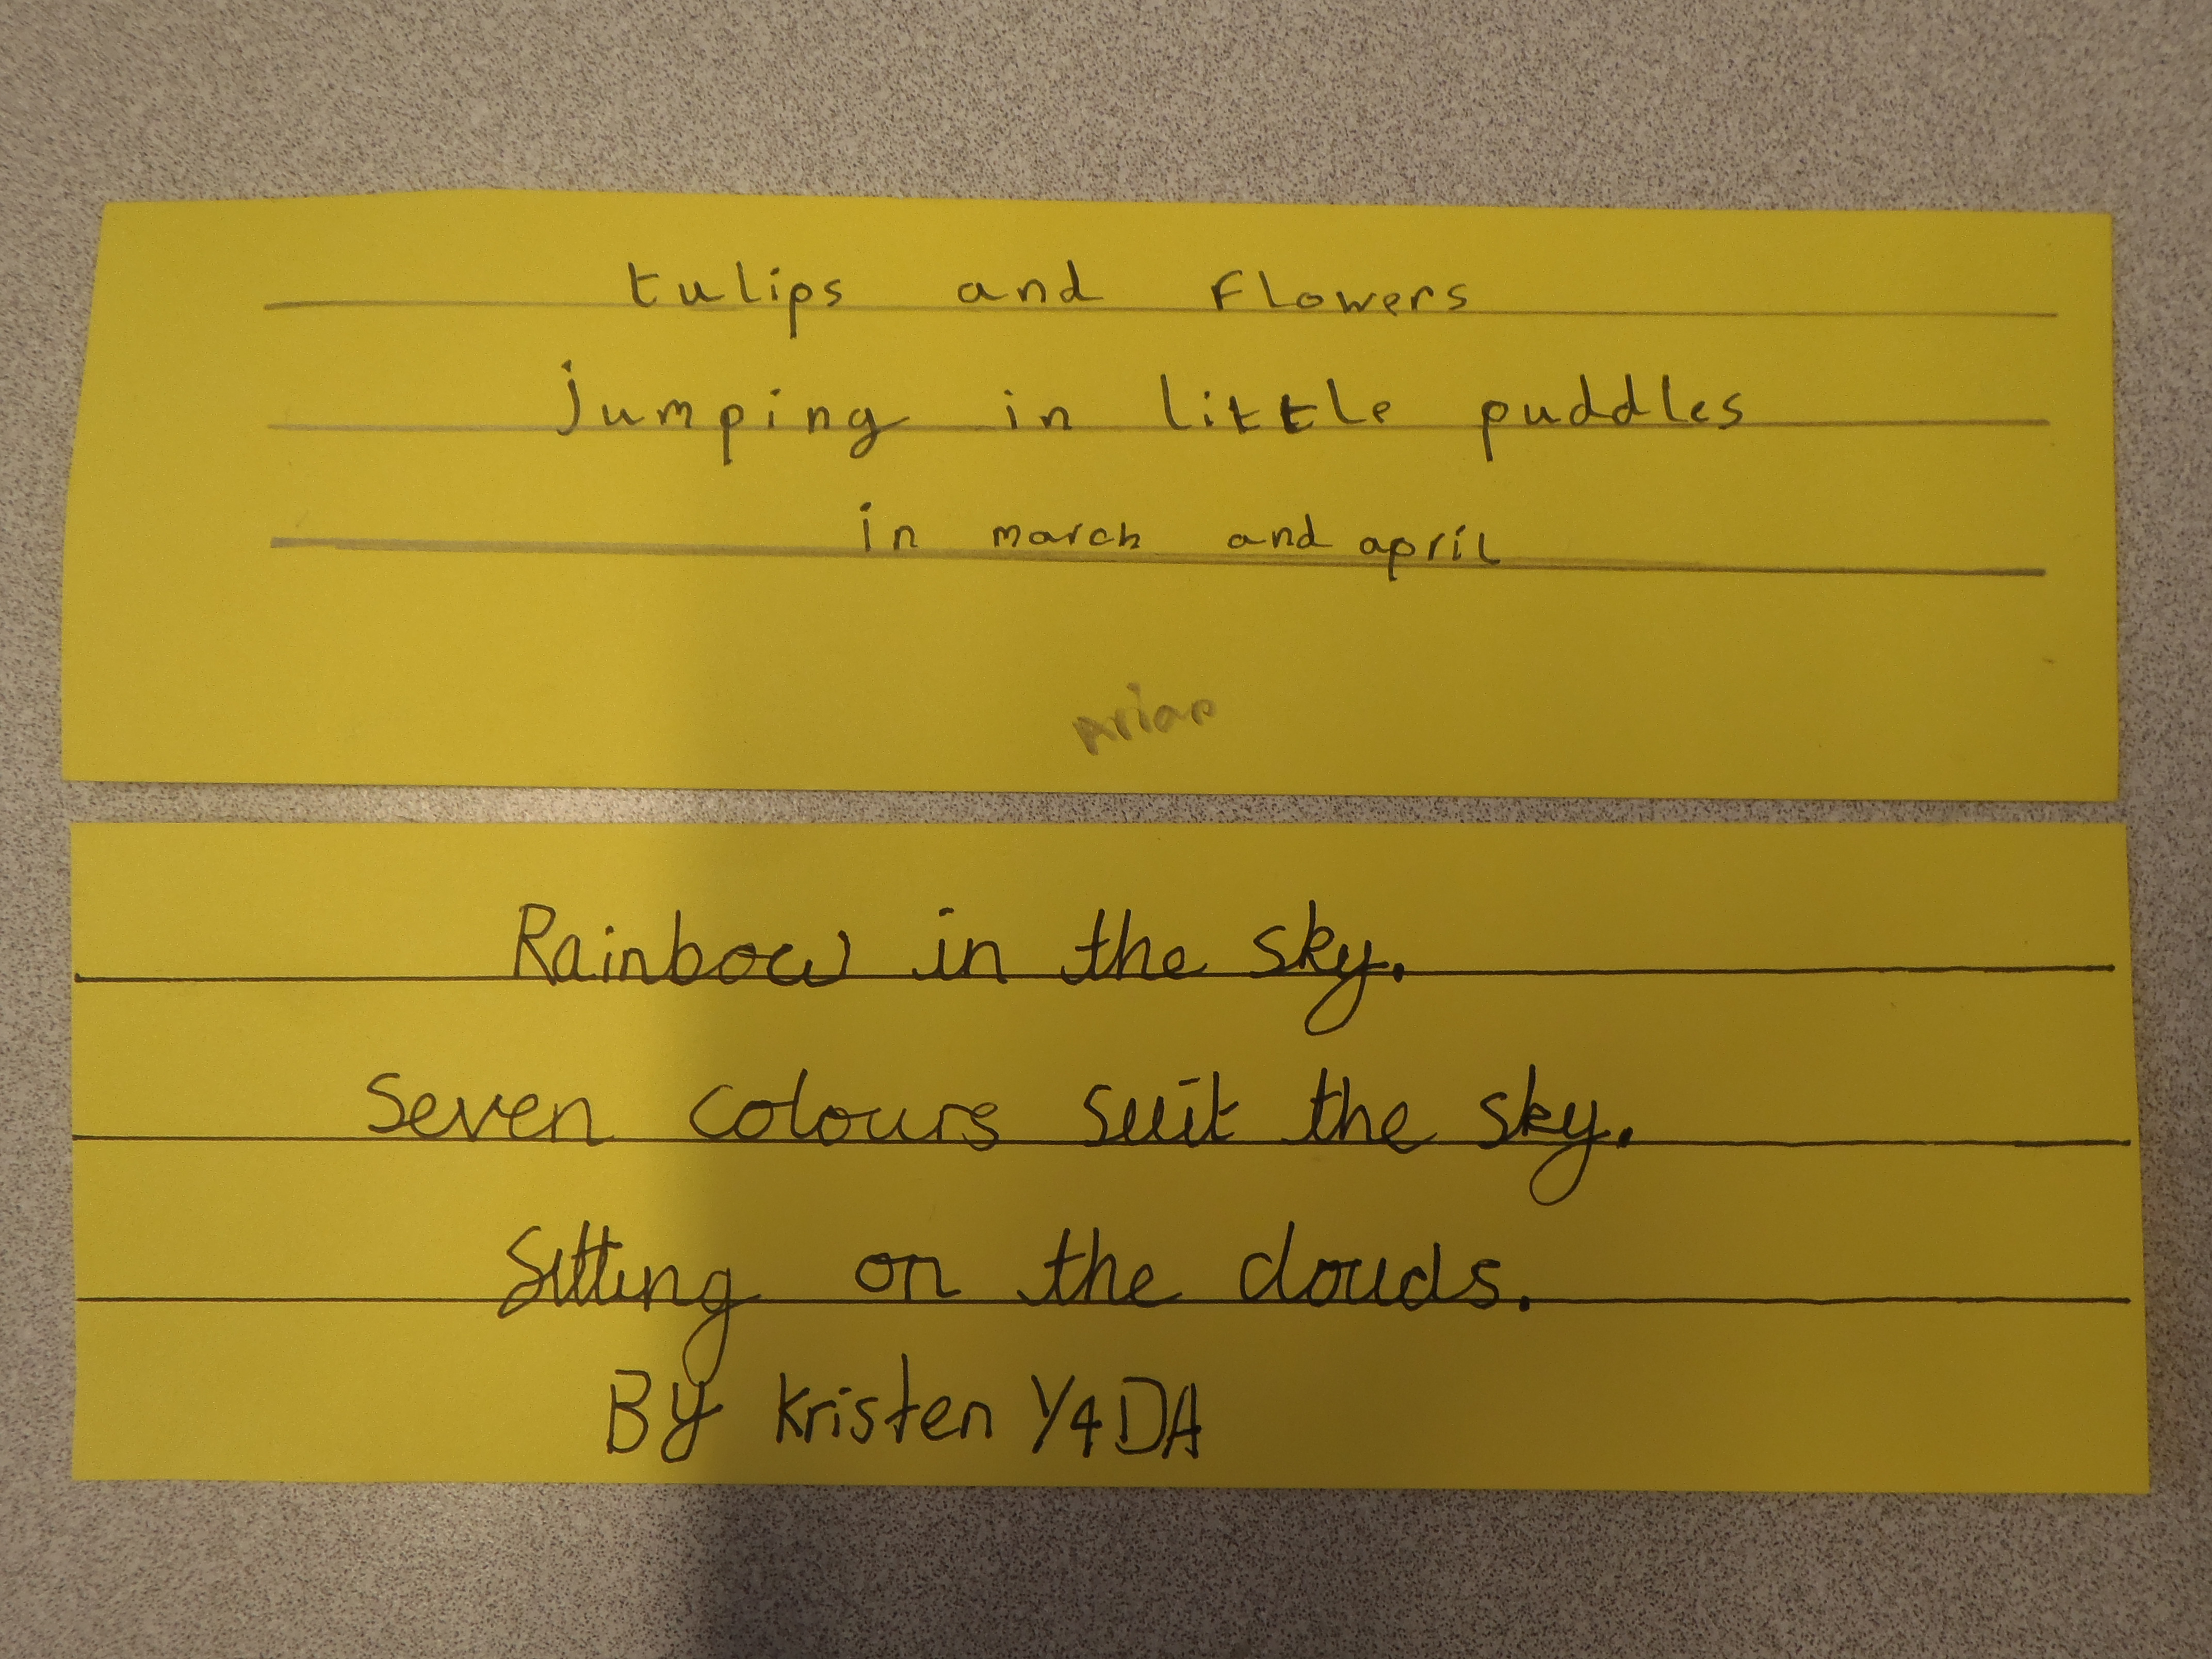 tulips and Flowers
jumping in little puddles
in march and april
Rainbow in the sky.
Seven colours suit the sky.
Sitting on the clouds.
By Kristen Y4DA